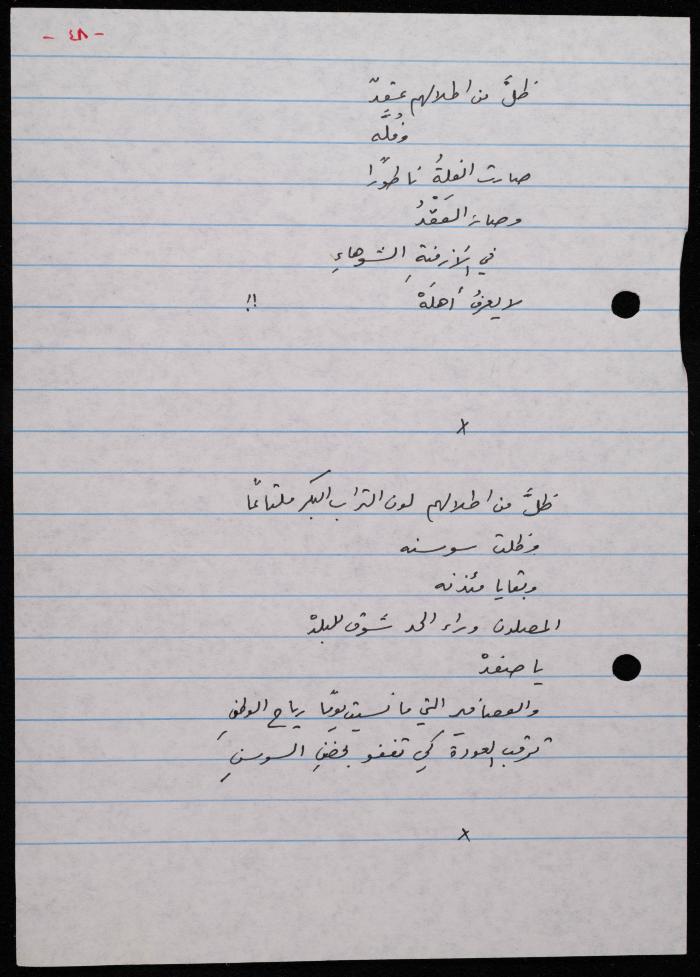 - ٤٨ -
ظلَّ من اطلالهم عقدٌ
وفُلَّه
صارت الفلةُ ناطورًا
وصار العَقْدُ
في الأزقةِ الشوهاءِ
لا يعرفُ أهلَهْ !!
x
ظلَّ من اطلالهم لون التراب البكر ملتاعًا
وظلت سوسنه
وبقايا مئذنه
المصلون وراء الحد شوق للبلدْ
يا صفدْ
والعصافير التي ما نسيت يومًا رياح الوطنِ
ترقب العودة كي تغفو بحضنِ السوسنِ
x